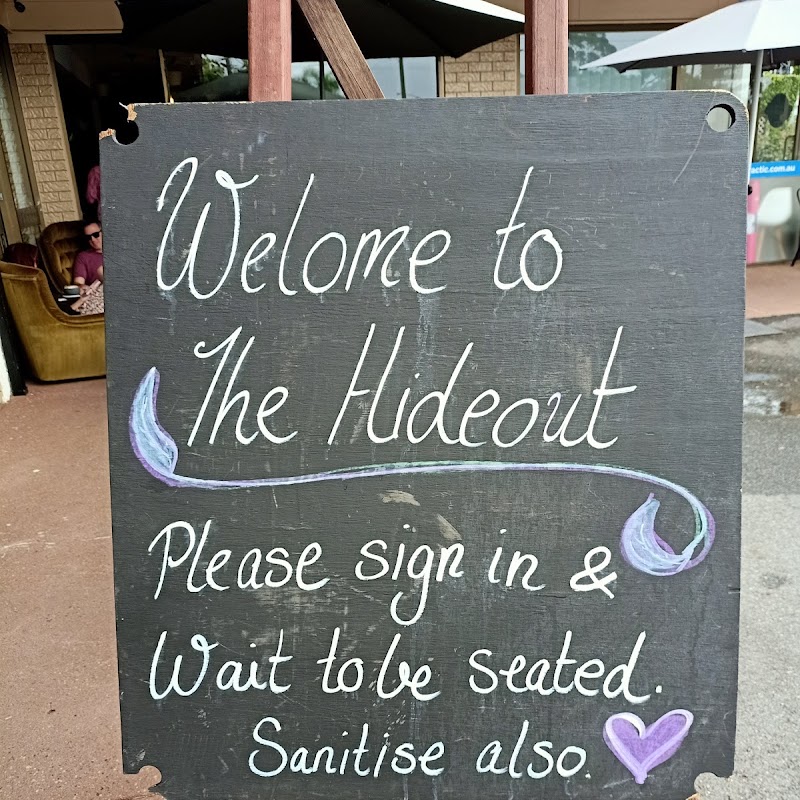 Welome to
The Hideout
Please sign in &
Wait to be seated.
Sanitise also.
actic.com.au